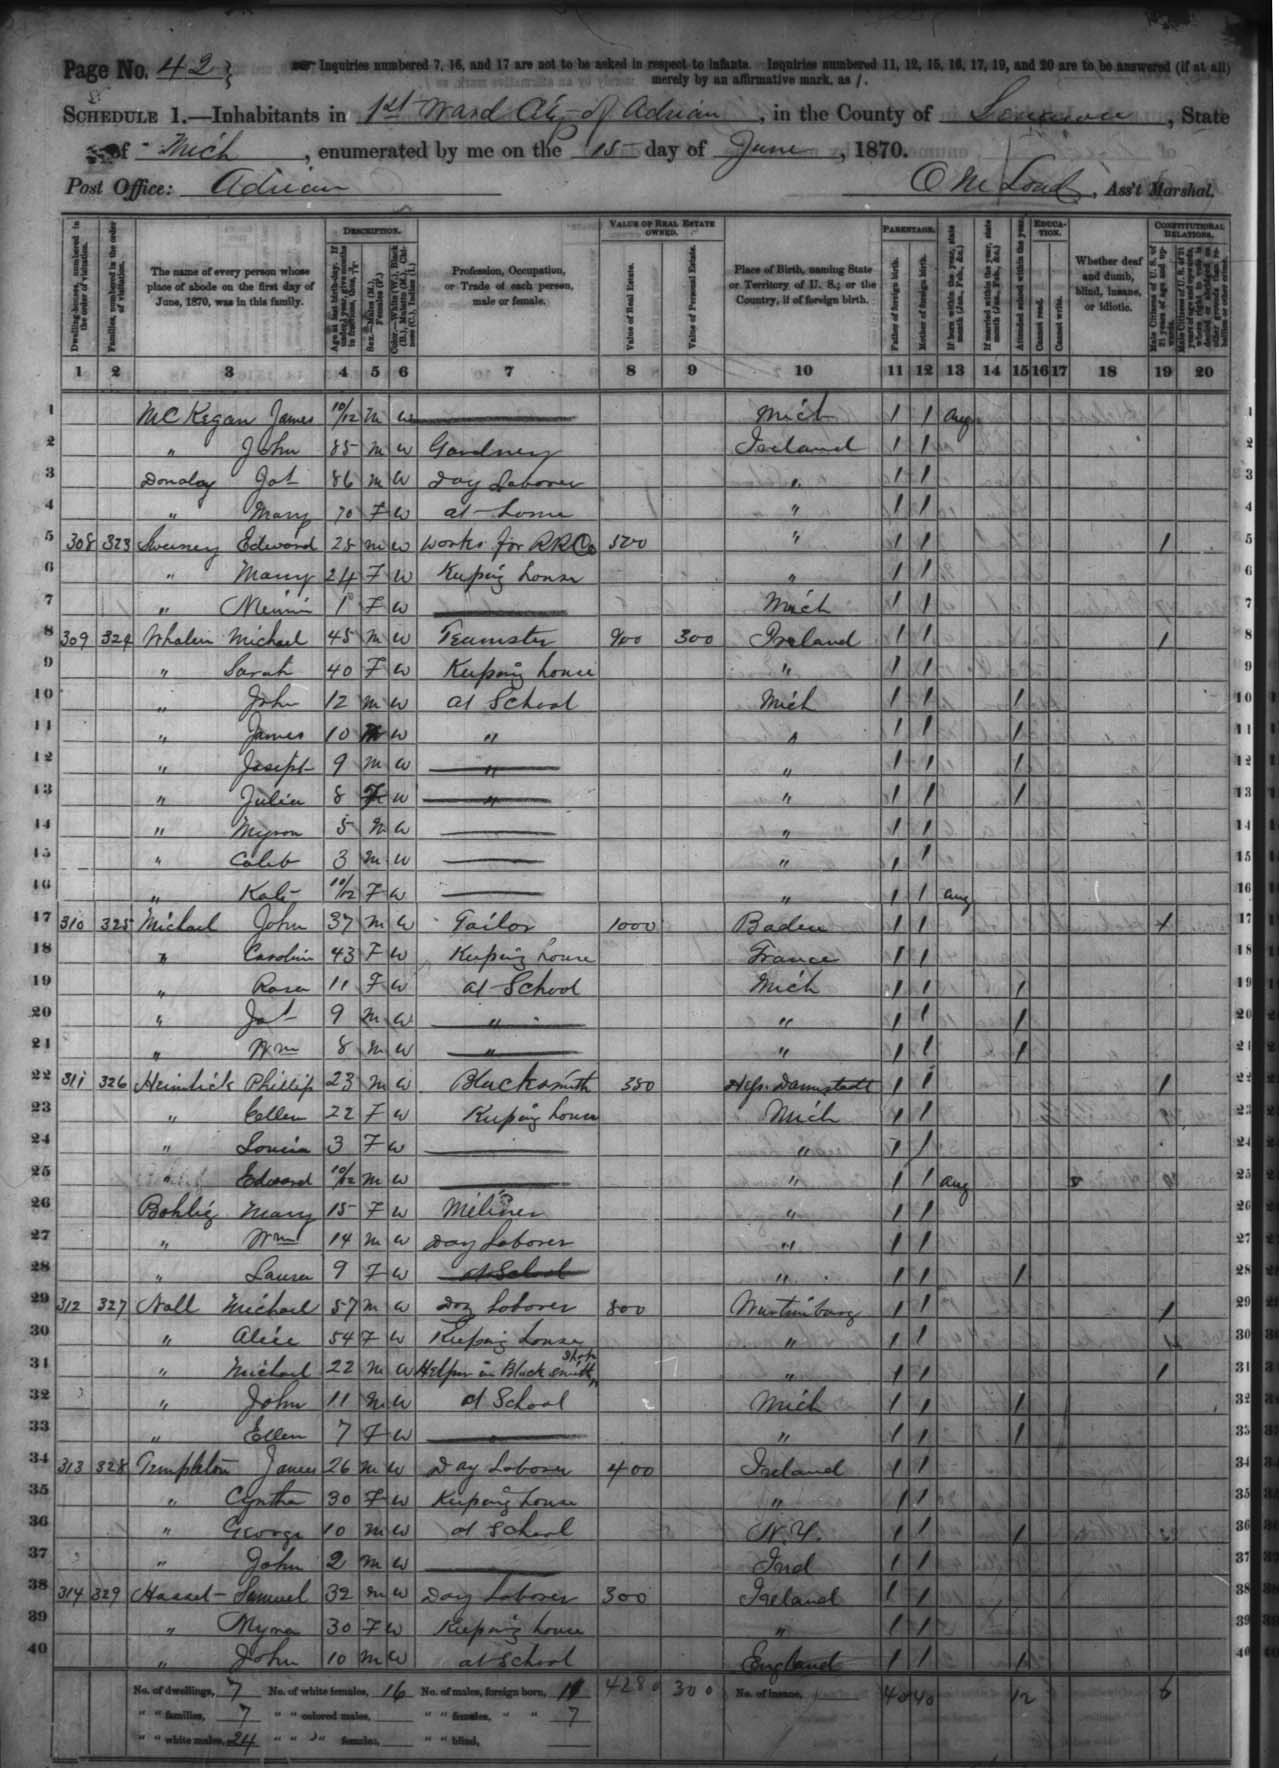 Page No. 42 Inquiries numbered 7, 16, and 17 are not to be asked in respect to infants. Inquiries numbered 11, 12, 15, 16, 17, 19, and 20 are to be answered (if at all)
merely by an affirmative mark, as /.
SCHEDULE 1.—Inhabitants in 1st Ward City of Adrian, in the County of Lenawee, State
of Mich, enumerated by me on the 15 day of June, 1870.
Post Office: Adrian O M Loud, Ass't Marshal.
Dwelling-houses, numbered in the order of visitation.
Families, numbered in the order of visitation.
The name of every person whose place of abode on the first day of June, 1870, was in this family.
DESCRIPTION.
Age at last birth-day. If under 1 year, give months in fractions, thus, 3/12
Sex.—Males (M.), Females (F.)
Color.—White (W.), Black (B.), Mulatto (M.), Chinese (C.), Indian (I.)
Profession, Occupation, or Trade of each person, male or female.
VALUE OF REAL ESTATE OWNED.
Value of Real Estate.
Value of Personal Estate.
Place of Birth, naming State or Territory of U. S.; or the Country, if of foreign birth.
PARENTAGE.
Father of foreign birth.
Mother of foreign birth.
If born within the year, state month (Jan., Feb., &c.)
If married within the year, state month (Jan., Feb., &c.)
Attended school within the year.
EDUCATION.
Cannot read.
Cannot write.
Whether deaf and dumb, blind, insane, or idiotic.
CONSTITUTIONAL RELATIONS.
Male Citizens of U. S. of 21 years of age and upwards.
1 2 3 4 5 6 7 8 9 10 11 12 13 14 15 16 17 18 19 20
1 McKegan James 10/12 M W Mich / / Aug 1
2 " John 85 M W Gardner Ireland / / 2
3 Donaloy Jas 86 M W Day Laborer " / / 3
4 " Mary 70 F W at home " / / 4
5 308 323 Sweeney Edward 28 M W works for RR Co 500 " / / / 5
6 " Mary 24 F W Keeping house " / / 6
7 " Minnie 1 F W Mich / / 7
8 309 324 Whalen Michael 45 M W Teamster 900 300 Ireland / / / 8
9 " Sarah 40 F W Keeping house " / / 9
10 " John 12 M W at School Mich / / / 10
11 " James 10 M W " " / / / 11
12 " Joseph 9 M W " " / / / 12
13 " Julia 8 F W " " / / / 13
14 " Myron 5 M W " / / 14
15 " Caleb 3 M W " / / 15
16 " Kate 10/12 F W " / / Aug 16
17 310 325 Michael John 37 M W Tailor 1000 Baden / / / 17
18 " Carolin 43 F W Keeping house France / / 18
19 " Rosa 11 F W at School Mich / / / 19
20 " Jas 9 M W " " / / / 20
21 " Wm 8 M W " " / / / 21
22 311 326 Heimlick Phillip 23 M W Blacksmith 380 Hess Darmstadt / / / 22
23 " Ellen 22 F W Keeping house Mich / / 23
24 " Louisa 3 F W " / / 24
25 " Edward 10/12 M W " / / Aug 25
26 Bohlig Mary 15 F W Meliner " / / 26
27 " Wm 14 M W Day Laborer " / / 27
28 " Laura 9 F W at School " / / / 28
29 312 327 Nall Michael 57 M W Day Laborer 800 Wurtimburg / / / 29
30 " Alice 54 F W Keeping house " / / 30
31 " Michael 22 M W Helper in Blacksmith Shop " / / / 31
32 " John 11 M W at School Mich / / / 32
33 " Ellen 7 F W " " / / / 33
34 313 328 Templeton James 26 M W Day Laborer 400 Ireland / / 34
35 " Cyntha 30 F W Keeping house " / / 35
36 " George 10 M W at School N.Y. / / / 36
37 " John 2 M W Ind / / 37
38 314 329 Hassel Samuel 32 M W Day Laborer 300 Ireland / / 38
39 " Myra 30 F W Keeping house " / / 39
40 " John 10 M W at School England / / / 40
No. of dwellings, 7 No. of white females, 16 No. of males, foreign born, 11 4280 300 No. of insane, 40 40 12 6
" " families, 7 " " colored males, " " females, " " 7
" " white males, 24 " " " females, " " blind,